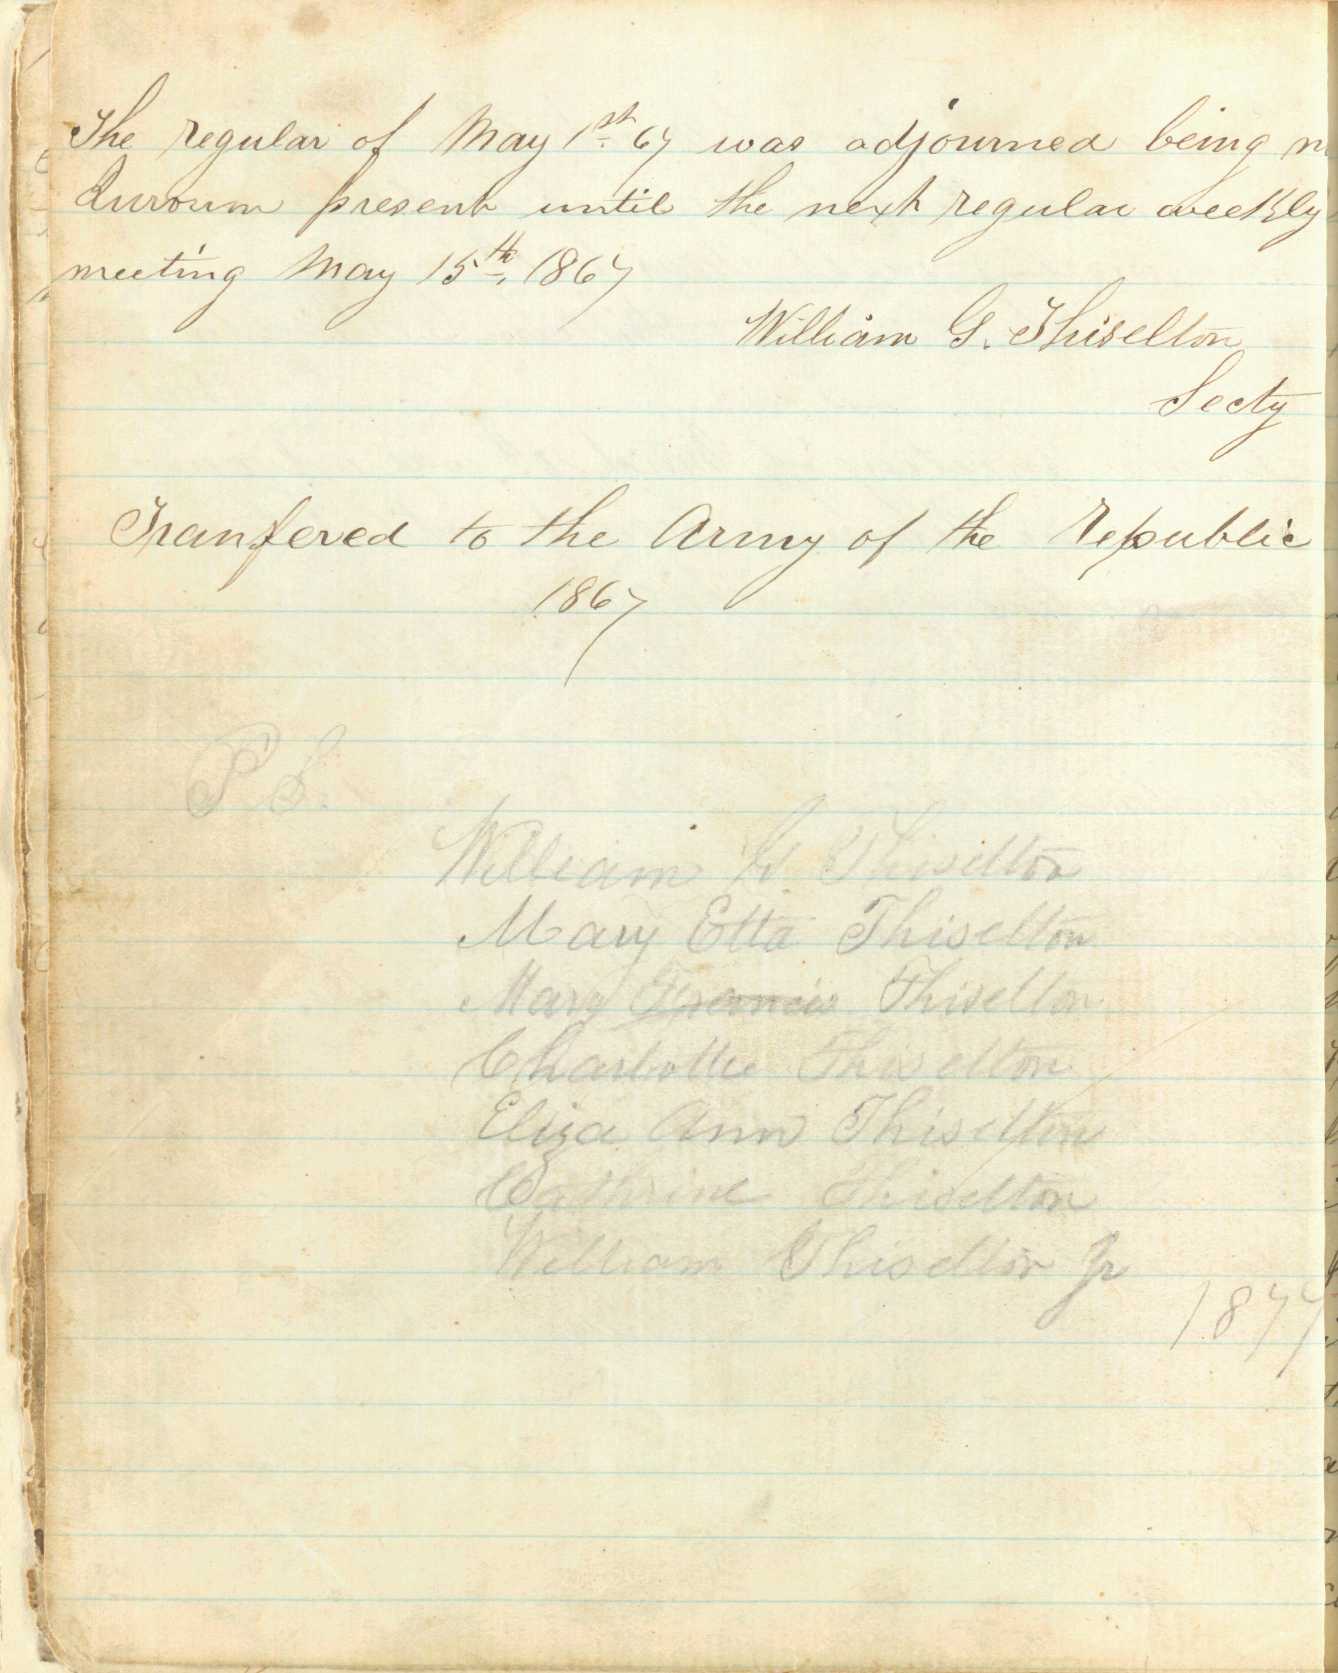 The regular of May 1st 67 was adjourned being
Quroum present until the next regular weekly
meeting May 15th, 1867
William G. Thiselton
Secty
Tranfered to the Army of the Republic
1867
P S.
William G Thiselton
Mary Etta Thiselton
Mary Francis Thiselton
Charlottie Thiselton
Eliza Ann Thiselton
Cathrine Thiselton
William Thiselton Jr
1877